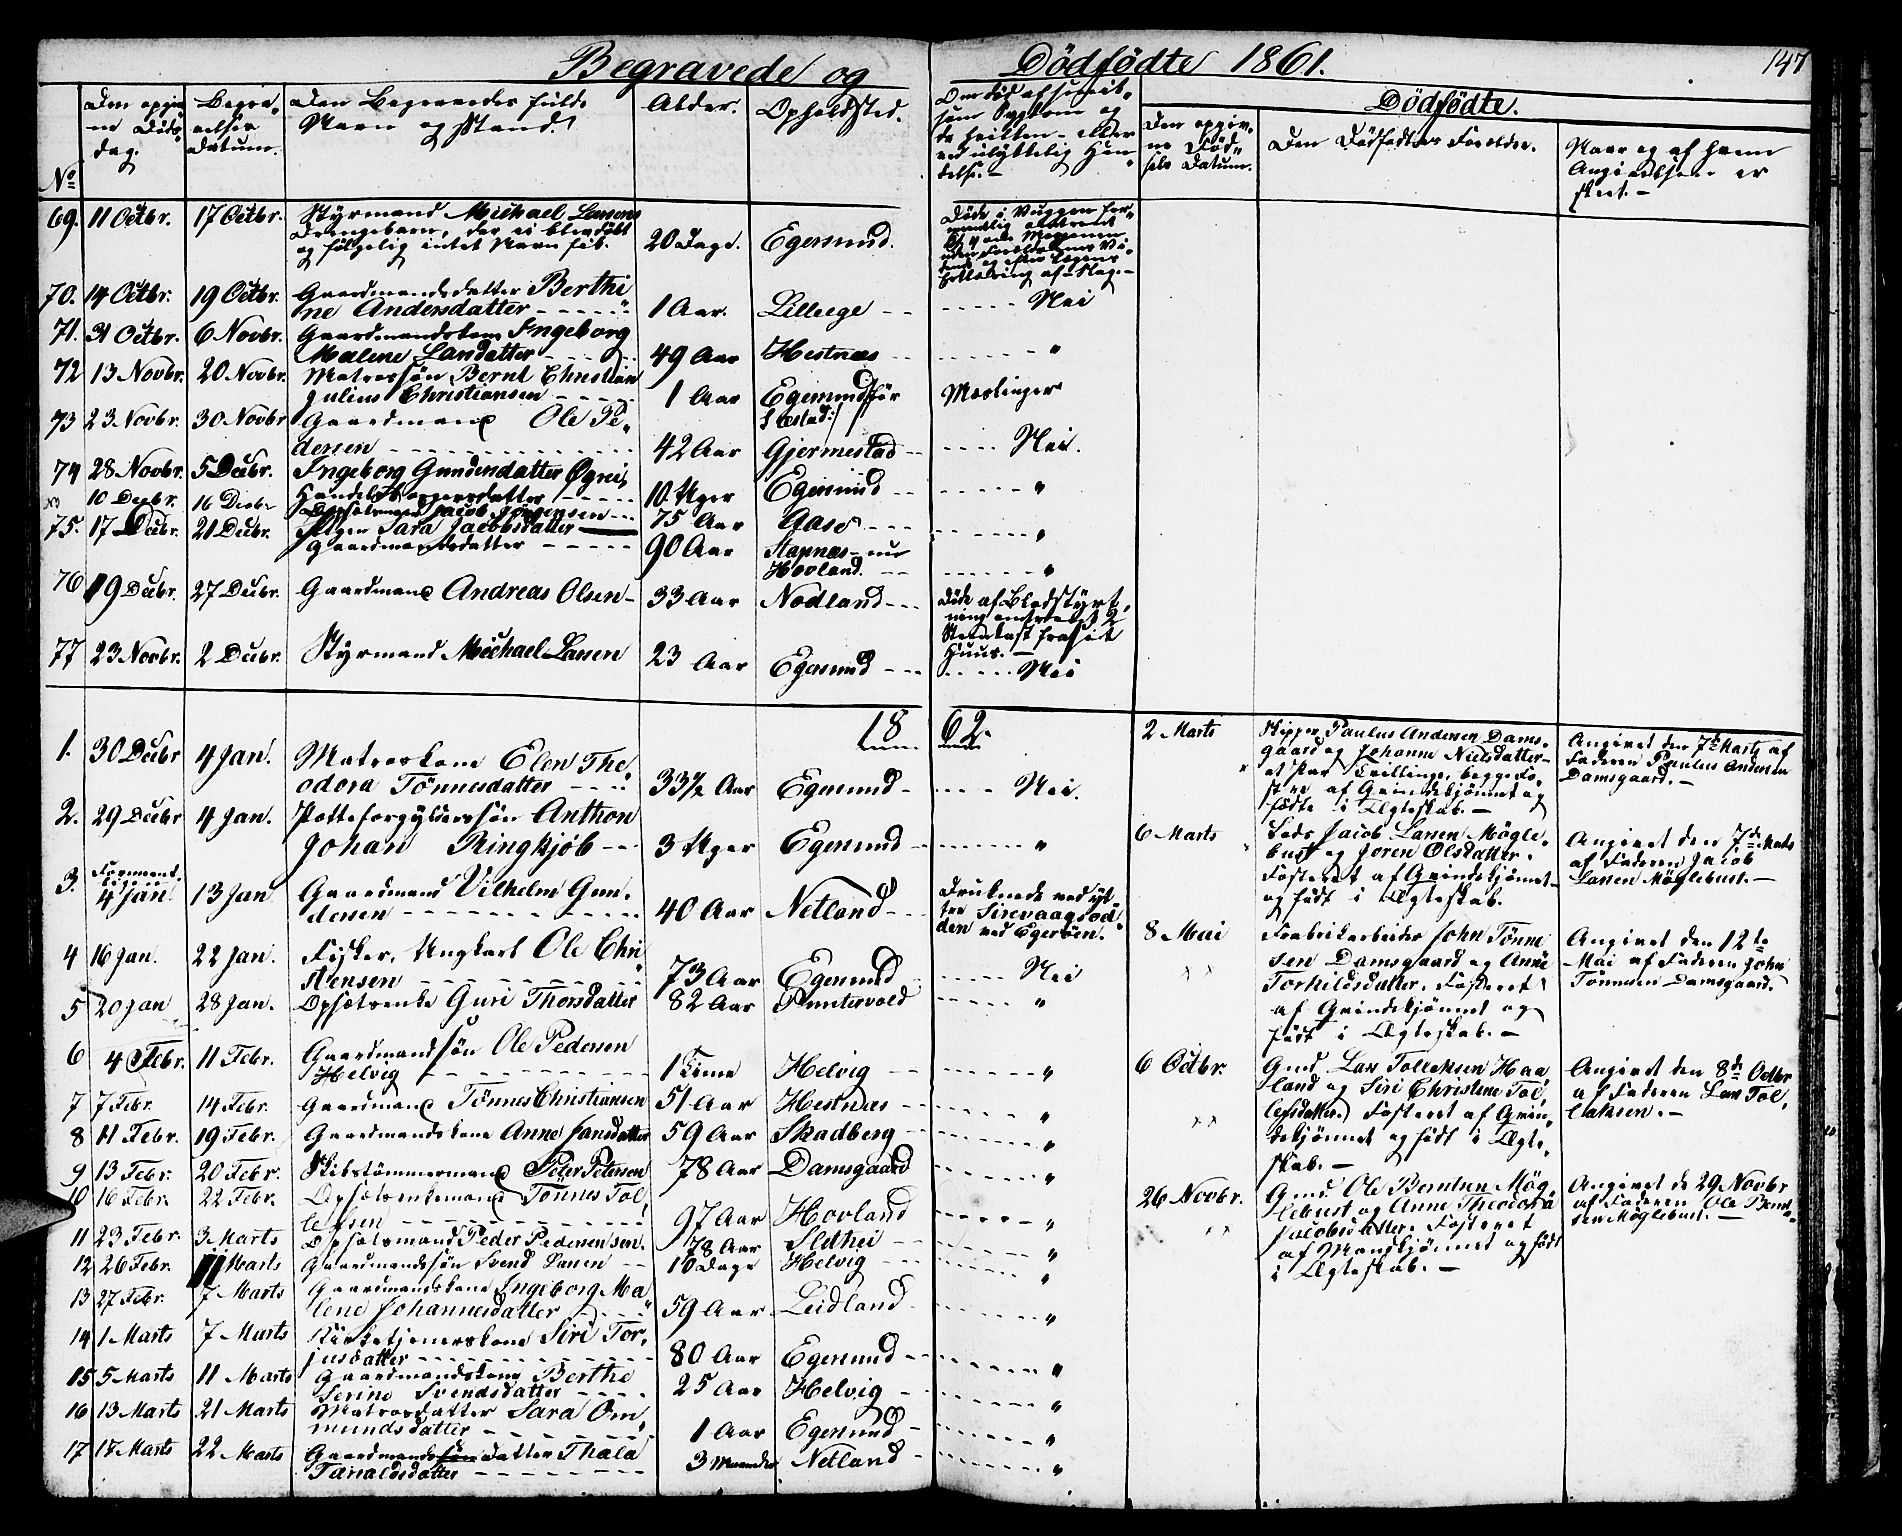 Begravede og Dödfödte 1861. 147
No
Den opgivne Döds dag.
Begravelses Datum.
Den Begravedes fulde Navn og Stand.
Alder.
Opholdsted.
Dödfödte.
Den Dödfödtes Forældre.
Naar og af hvem Angivelsen er skeet.-
69. 11 Octbr. 17 Octbr. Styrmand Michael Larsens
Drengebarn, der ei blev döbt
og fölgelig intet Navn fik. 20 Dage. Egersund.
70. 14 Octbr. 19 Octbr. Gaardmandsdatter Berthi
ne Andersdatter 1 Aar. Nei
71. 31 Octbr. 6 Novbr. Gaardmandskone Ingeborg
Malene Larsdatter 49 Aar Hestnæs "
72 13 Novbr. 20 Novbr. Matrossön Bernt Christian
Julius Christiansen 1 Aar Egersund Mæslinger
73 23 Novbr. 30 Novbr Gaardmand Ole Pe-
dersen 42 Aar Gjermestad Nei.
74 28 Novbr. 5 Decbr. Ingeborg Gundersdatter
10 Uger Egersund "
10 Decbr. 16 Decbr Jacob Jörgensen 75 Aar
75. 17 Decbr. 21 Decbr. Pigen Sara Jacobsdatter
Gaardmandsdatter 90 Aar Stapnæs
Hovland. "
76 19 Decbr. 27 Decbr. Gaardmand Andreas Olsen 33 Aar Nodland Döde af Blodstyrt-
ning omtrent 2
Steenkast fra sit
Huus.-
77 23 Novbr. 2 Decbr. Styrmand Michael Larsen 23 Aar Egersund Nei
1862.
1. 30 Decbr 4 Jan. Matroskone Elen The-
odora Tönnesdatter 33½ Aar Egersund Nei.
2. 29 Decbr 4 Jan. Potteforgylderssön Anthon
Johan Ringkjöb 3 Uger Egersund "
3. Forment. 4 Jan. 13 Jan Gaardmand Vilhelm Gun-
dersen 40 Aar Netland Druknede ved yt-
tre Sirevaagsod-
den ved Egeröen.
4 16 Jan. 22 Jan. Fisker, Ungkarl Ole Chri
stensen 73 Aar Egersund Nei
5 20 Jan 28 Jan. Opsötrende Guri Thorsdatter 82 Aar Puntervold "
6 4 Febr. 11 Febr. Gaardmandssön Ole Pedersen
Helvig 1 Time Helvig "
7 7 Febr. 14 Febr. Gaardmand Tönnes Christiansen 51 Aar Hestnæs "
8 11 Febr. 19 Febr. Gaardmandskone Anne Jansdatter 59 Aar Skadberg "
9 13 Febr. 20 Febr. Skibstömmermand Peter Petersen 78 Aar Damsgaard "
10 16 Febr. 22 Febr. Tönnes Tol-
lefsen 97 Aar Hovland "
11 23 Febr. 3 Marts Peder Pedersen sen. 78 Aar Sletthei "
12 26 Febr. Marts Gaardmandssön Svend 10 Dage Helvig "
13 27 Febr. 7 Marts Gaardmandskone Ingeborg Ma
lene Johannesdatter 59 Aar Leidland "
14 1 Marts 7 Marts Kirketjenerskone Siri Tor-
jusdatter 80 Aar Egersund "
15 5 Marts 11 Marts Gaardmandskone Berthe
Serine Svendsdatter 25 Aar Helvig "
16 13 Marts 21 Marts Matrosdatter Sara Om-
mundsdatter 1 Aar Egersund "
17 17 Marts 22 Marts Gaardmandsdatter Thala
Tarialdsdatter 3 Maaneder Netland "
2 Marts Skipper Paulus Andersen Dams-
gaard og Johanne Nielsdatter-
et Par Tvillinge, begge Fo-
stre af Qvindekjönnet og
födte i Ægteskab.-
Angivet den 7de Marts af
Faderen Paulus Andersen
Damsgaard.-
6 Marts Jacob Larsen Mögle-
bust og Joren Olsdatter.
Fosteret af Qvindekjönnet
og födt i Ægteskab.
Angivet den 7de Marts
af Faderen Jacob
Larsen Möglebust.-
8 Mai Fabrikarbeider John Tönne
sen Damsgaard og Anne
Torkildsdatter. Fosteret
af Qvindekjönnet og
födt i Ægteskab.-
Angivet den 12te
Mai af Faderen John
Tönnesen Damsgaard.
6 Octbr. Gmd Lars Tollefsen Haa
land og Siri Christine Tol-
lefsdatter. Fosteret af Qvin-
dekjönnet og födt i Ægte-
skab.-
Angivet den 8de Octbr
af Faderen Lars Tol-
lefsen.-
26 Novbr. Gmd. Ole Berntsen Mög-
lebust og Anne Theodora
Jacobsdatter. Fosteret
af Mandkjönnet og födt
i Ægteskab.-
Angivet de 29 Novbr
af Faderen Ole Bernt-
sen Möglebust.-